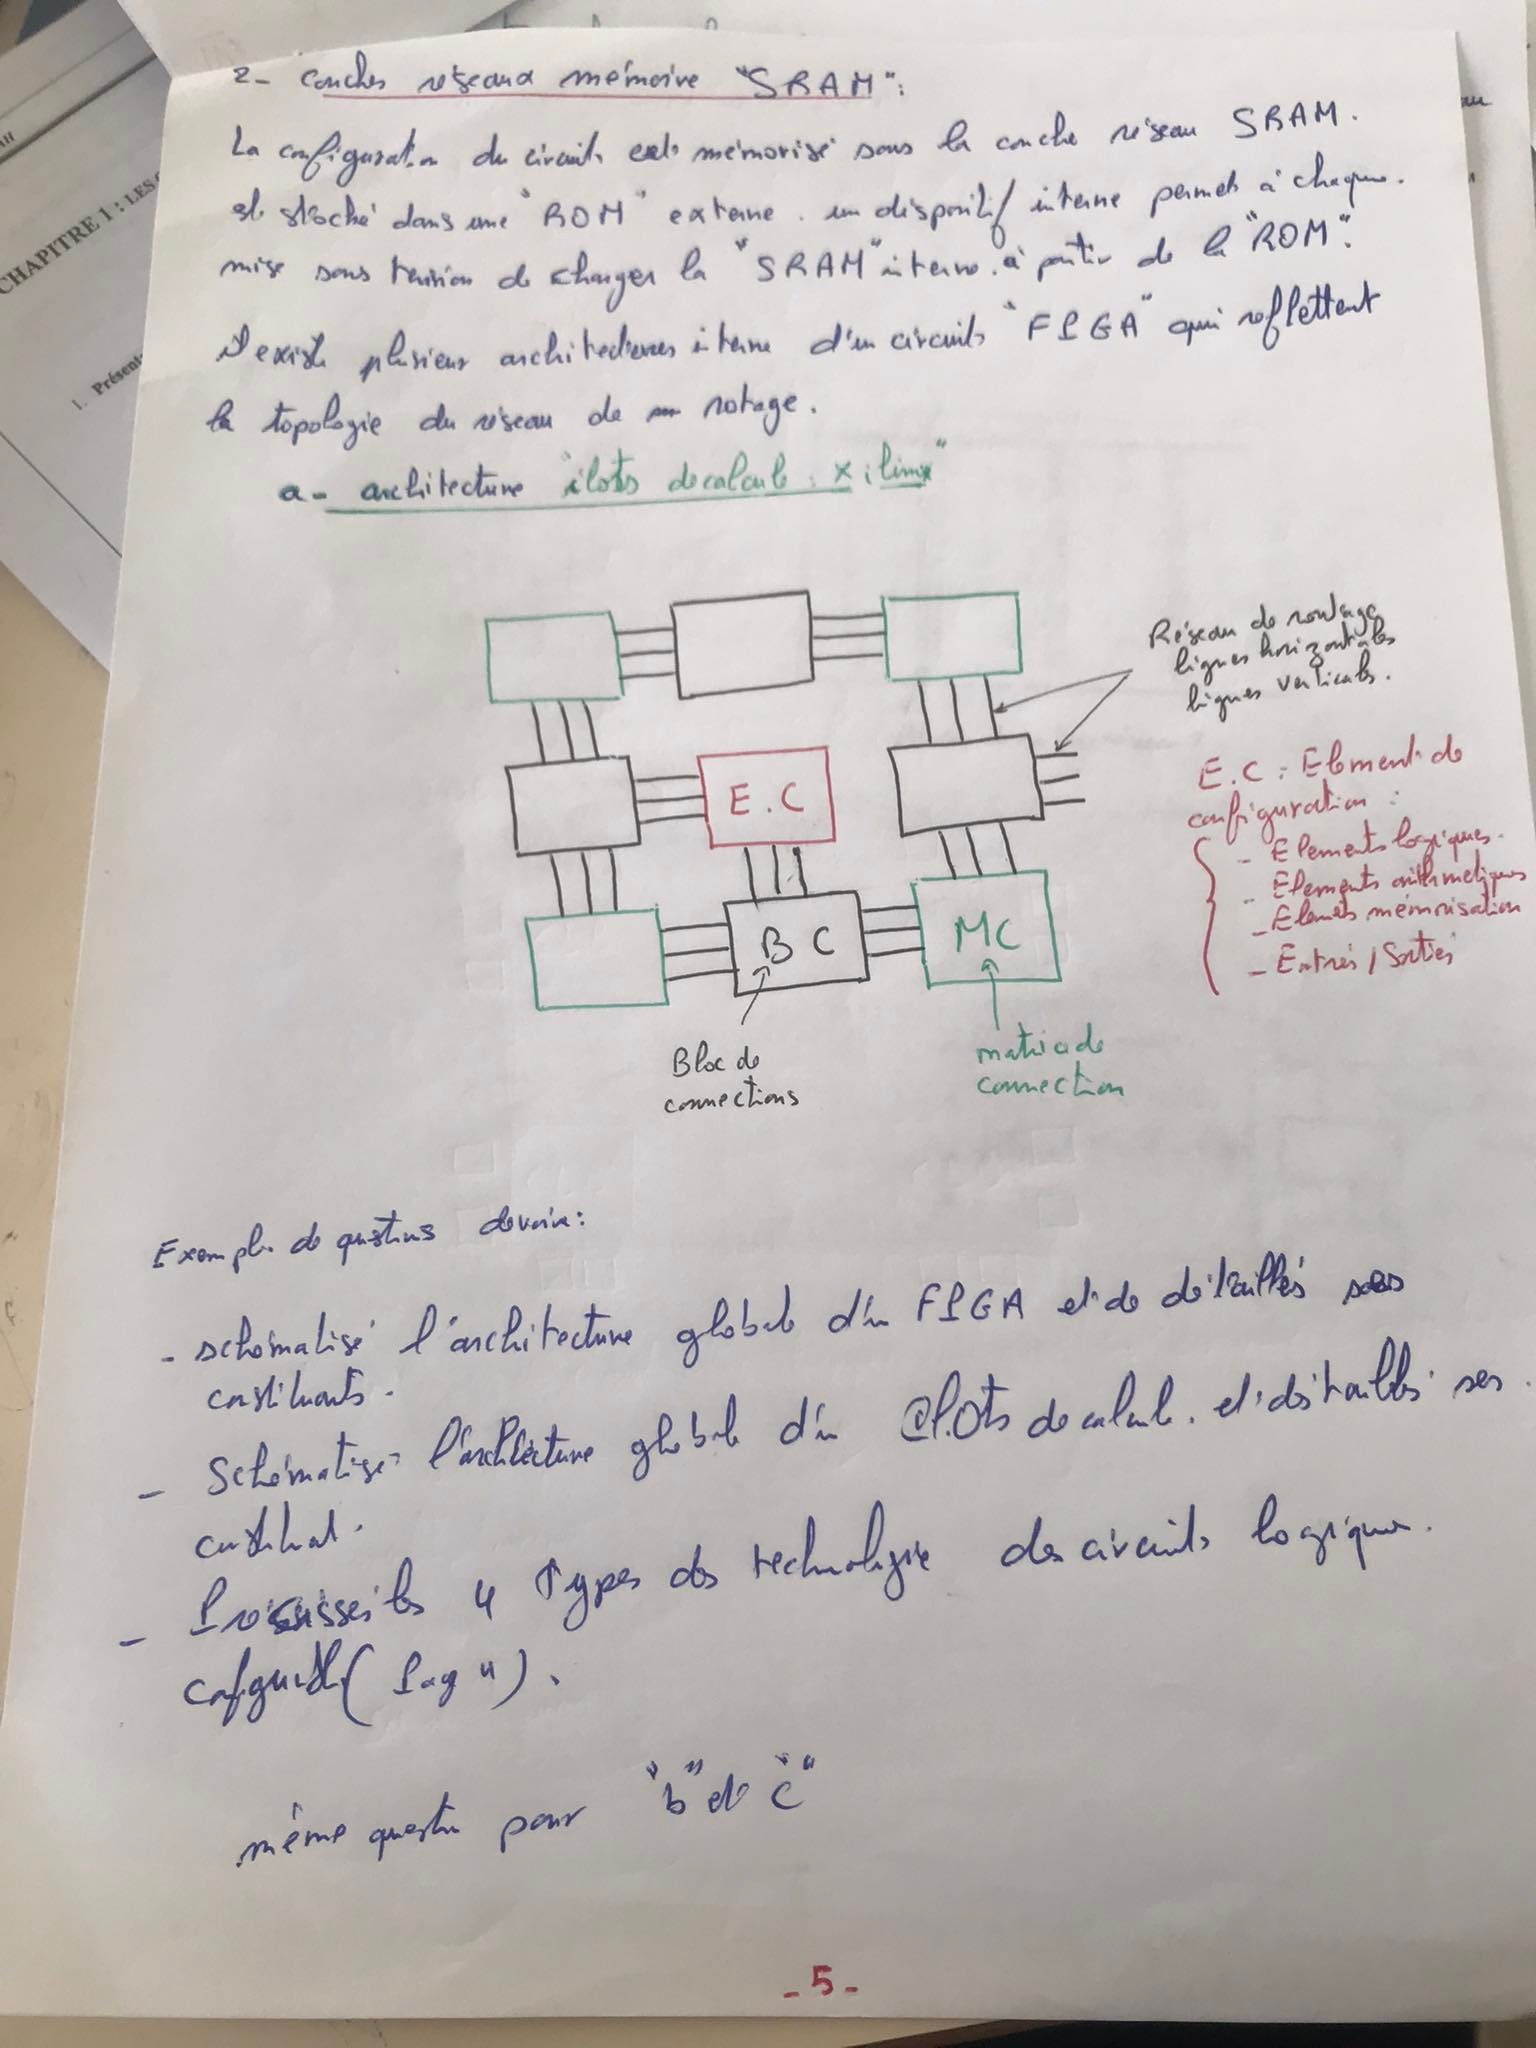 AH
CHAPITRE 1 : LES
1. Présent
2- couches réseaux mémoire "SRAM":
La configuration du circuits est mémorisé sous la couche réseau SRAM.
et stocké dans une "ROM" externe. un dispositif interne permet à chaque
mise sous tension de charger la "SRAM" interne. à partir de la "ROM".
il existe plusieurs architectures interne d'un circuits "FPGA" qui reflettent
la topologie du réseau de rotage.
a- architecture "ilots de calcule : xilinx"
Réseau de routage
lignes horizontales
lignes verticales.
E.C : Element de
configuration :
- Elements logiques.
- Elements arithmetiques
- Elemets mémorisation
- Entrés / Sorties
E.C
B C
MC
Bloc de
connections
matrice de
connection
Exemple de questions devoir:
- schématisé l'architecture globale d'un FPGA et de détaillés ses
constituants.
- Schématisé l'architecture globale d'un ilots de calcule. et détaillés ses
- les 4 Types des technologie des circuits logique
(Pag 4).
même question pour "b" et "c"
- 5 -